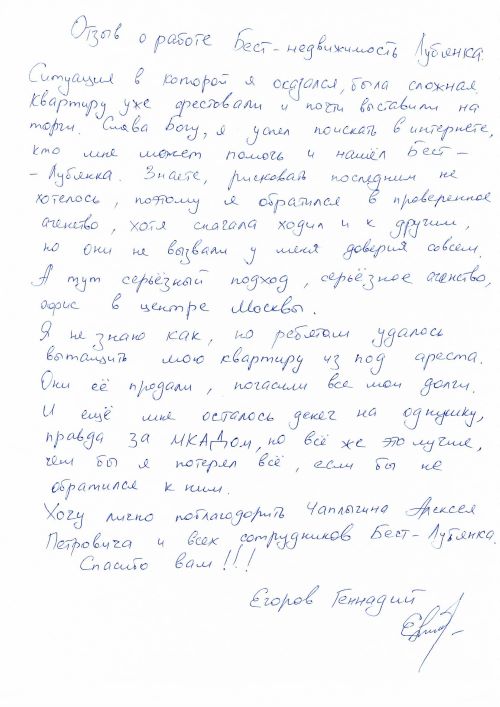 Отзыв о работе Бест-недвижимость Лубянка.
Ситуация в которой я оказался, была сложная
Квартиру уже арестовали и почти выставили на
торги. Слава Богу, я успел поискать в интернете,
кто мне может помочь и нашёл Бест-
-Лубянка. Знаете, рисковать последним не
хотелось, поэтому я обратился в проверенное
агенство, хотя сначала ходил и к другим,
но они не вызвали у меня доверия совсем.
А тут серьёзный подход, серьёзное агенство,
офис в центре Москвы.
Я не знаю как, но ребятам удалось
вытащить мою квартиру из под ареста.
Они её продали, погасили все мои долги.
И ещё мне осталось денег на однушку,
правда за МКАДом, но всё же это лучше,
чем бы я потерял всё, если бы не
обратился к ним.
Хочу лично поблагодорить Чаплыгина Алексея
Петровича и всех сотрудников Бест-Лубянка.
Спасибо вам!!!
Егоров Геннадий